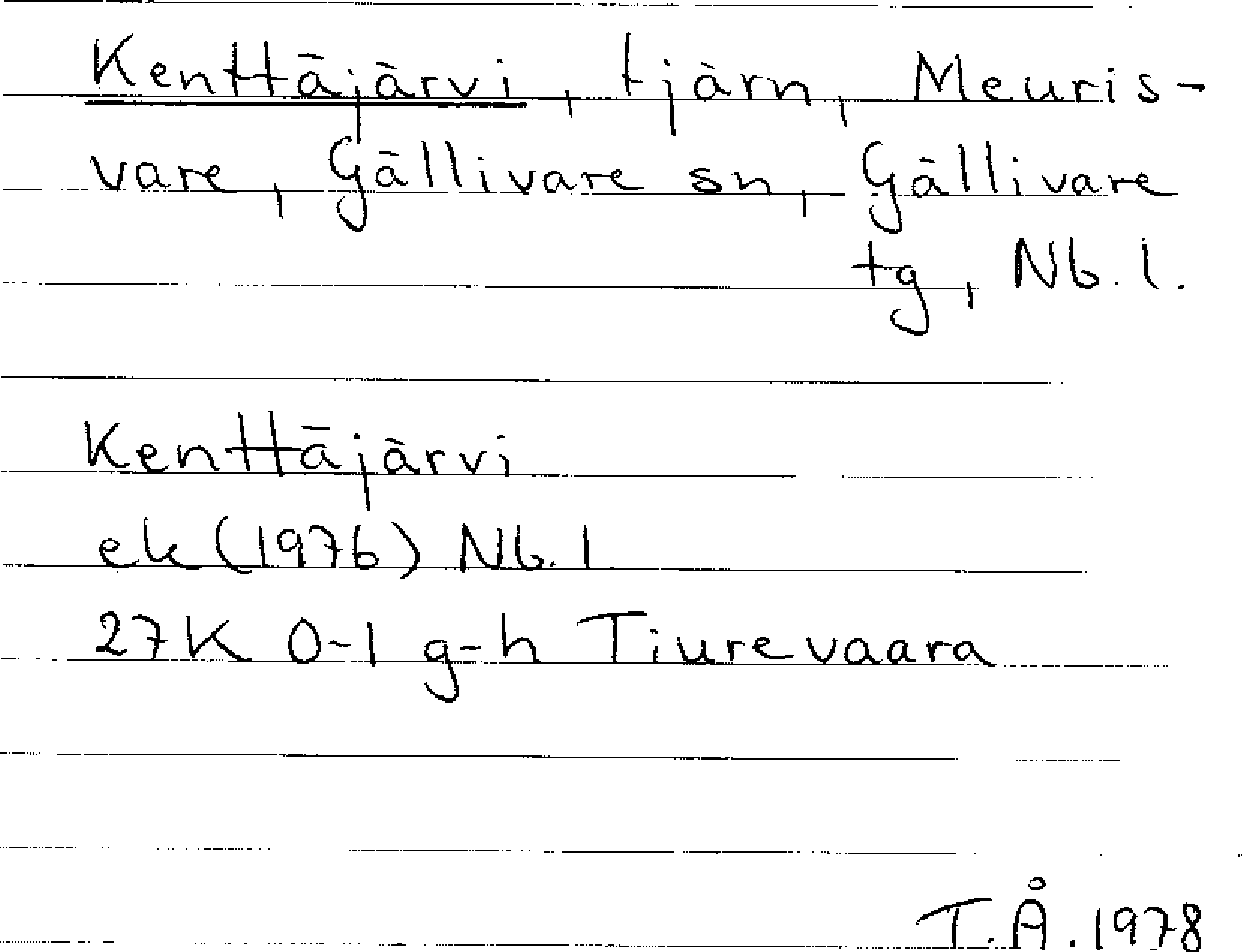 Kenttäjärvi, tjärn, Meuris-
vare, Gällivare sn, Gällivare
tg, Nb. l.
Kenttäjärvi
ek (1976) Nb. l
27K 0-1 g-h Tiurevaara
T.Å. 1978